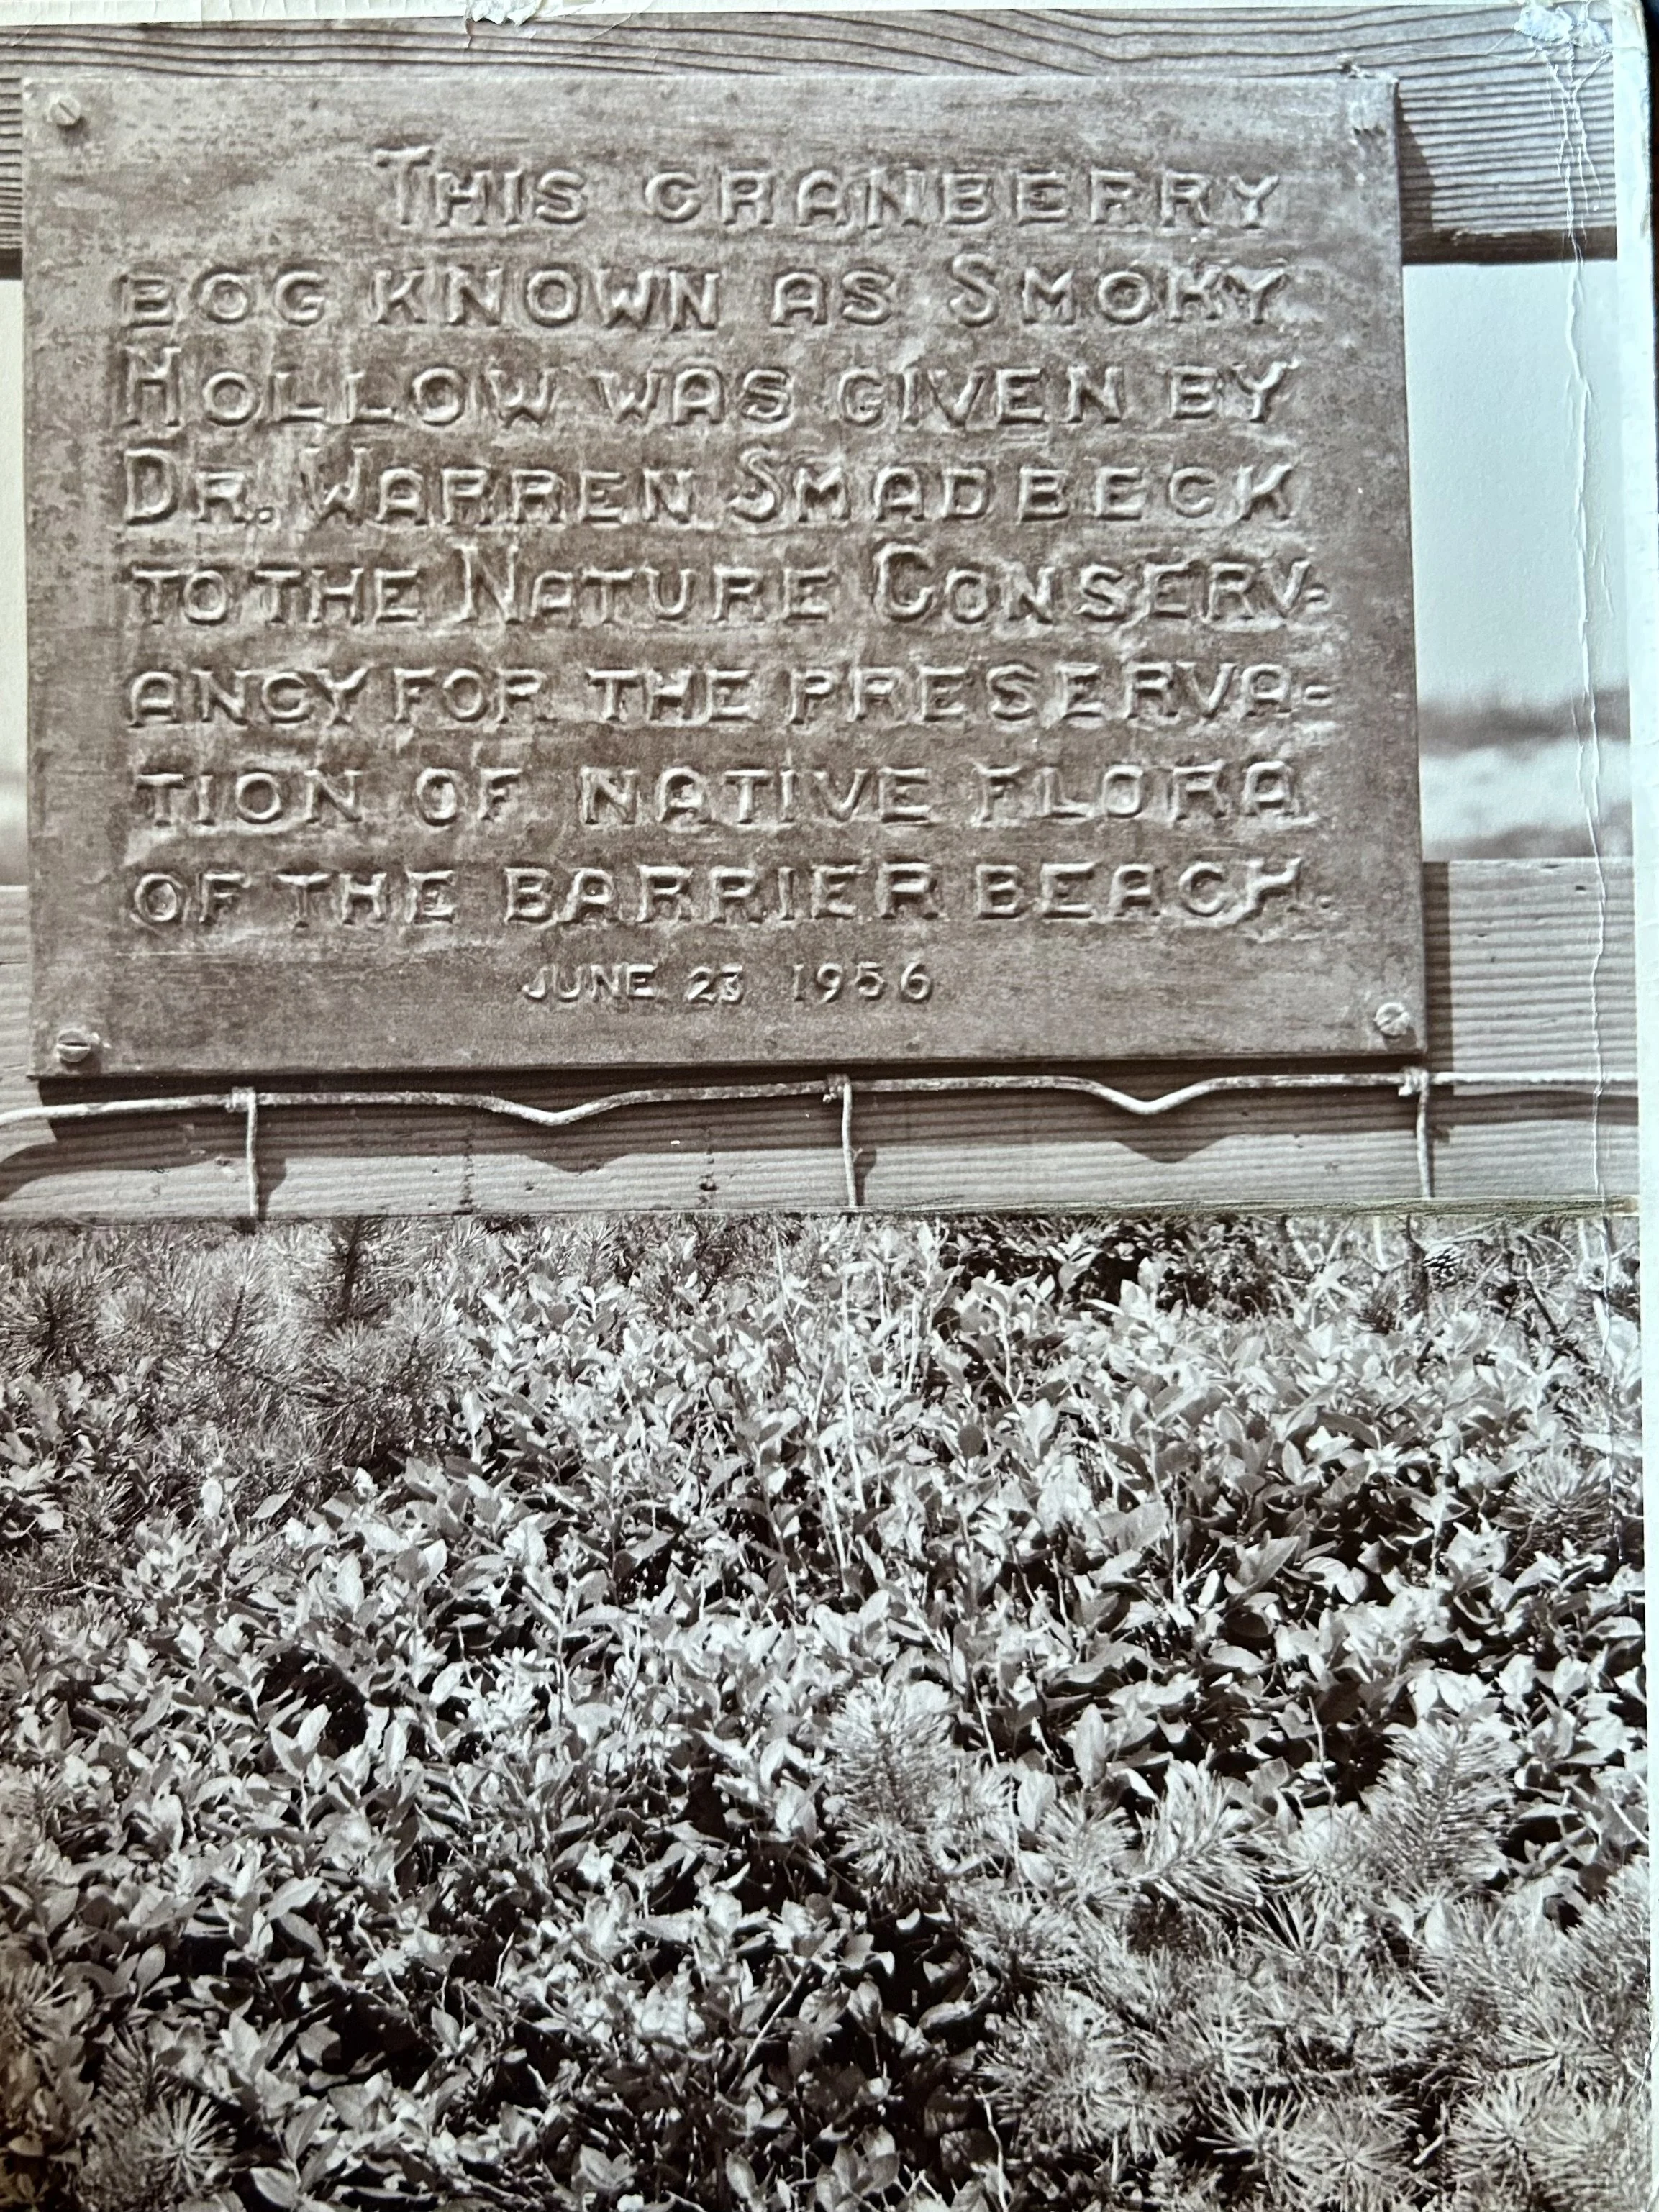 THIS CRANBERRY
BOG KNOWN AS SMOKY
HOLLOW WAS GIVEN BY
DR. WARREN SMADBECK
TO THE NATURE CONSERV=
ANCY FOR THE PRESERVA=
TION OF NATIVE FLORA
OF THE BARRIER BEACH.
JUNE 23 1956